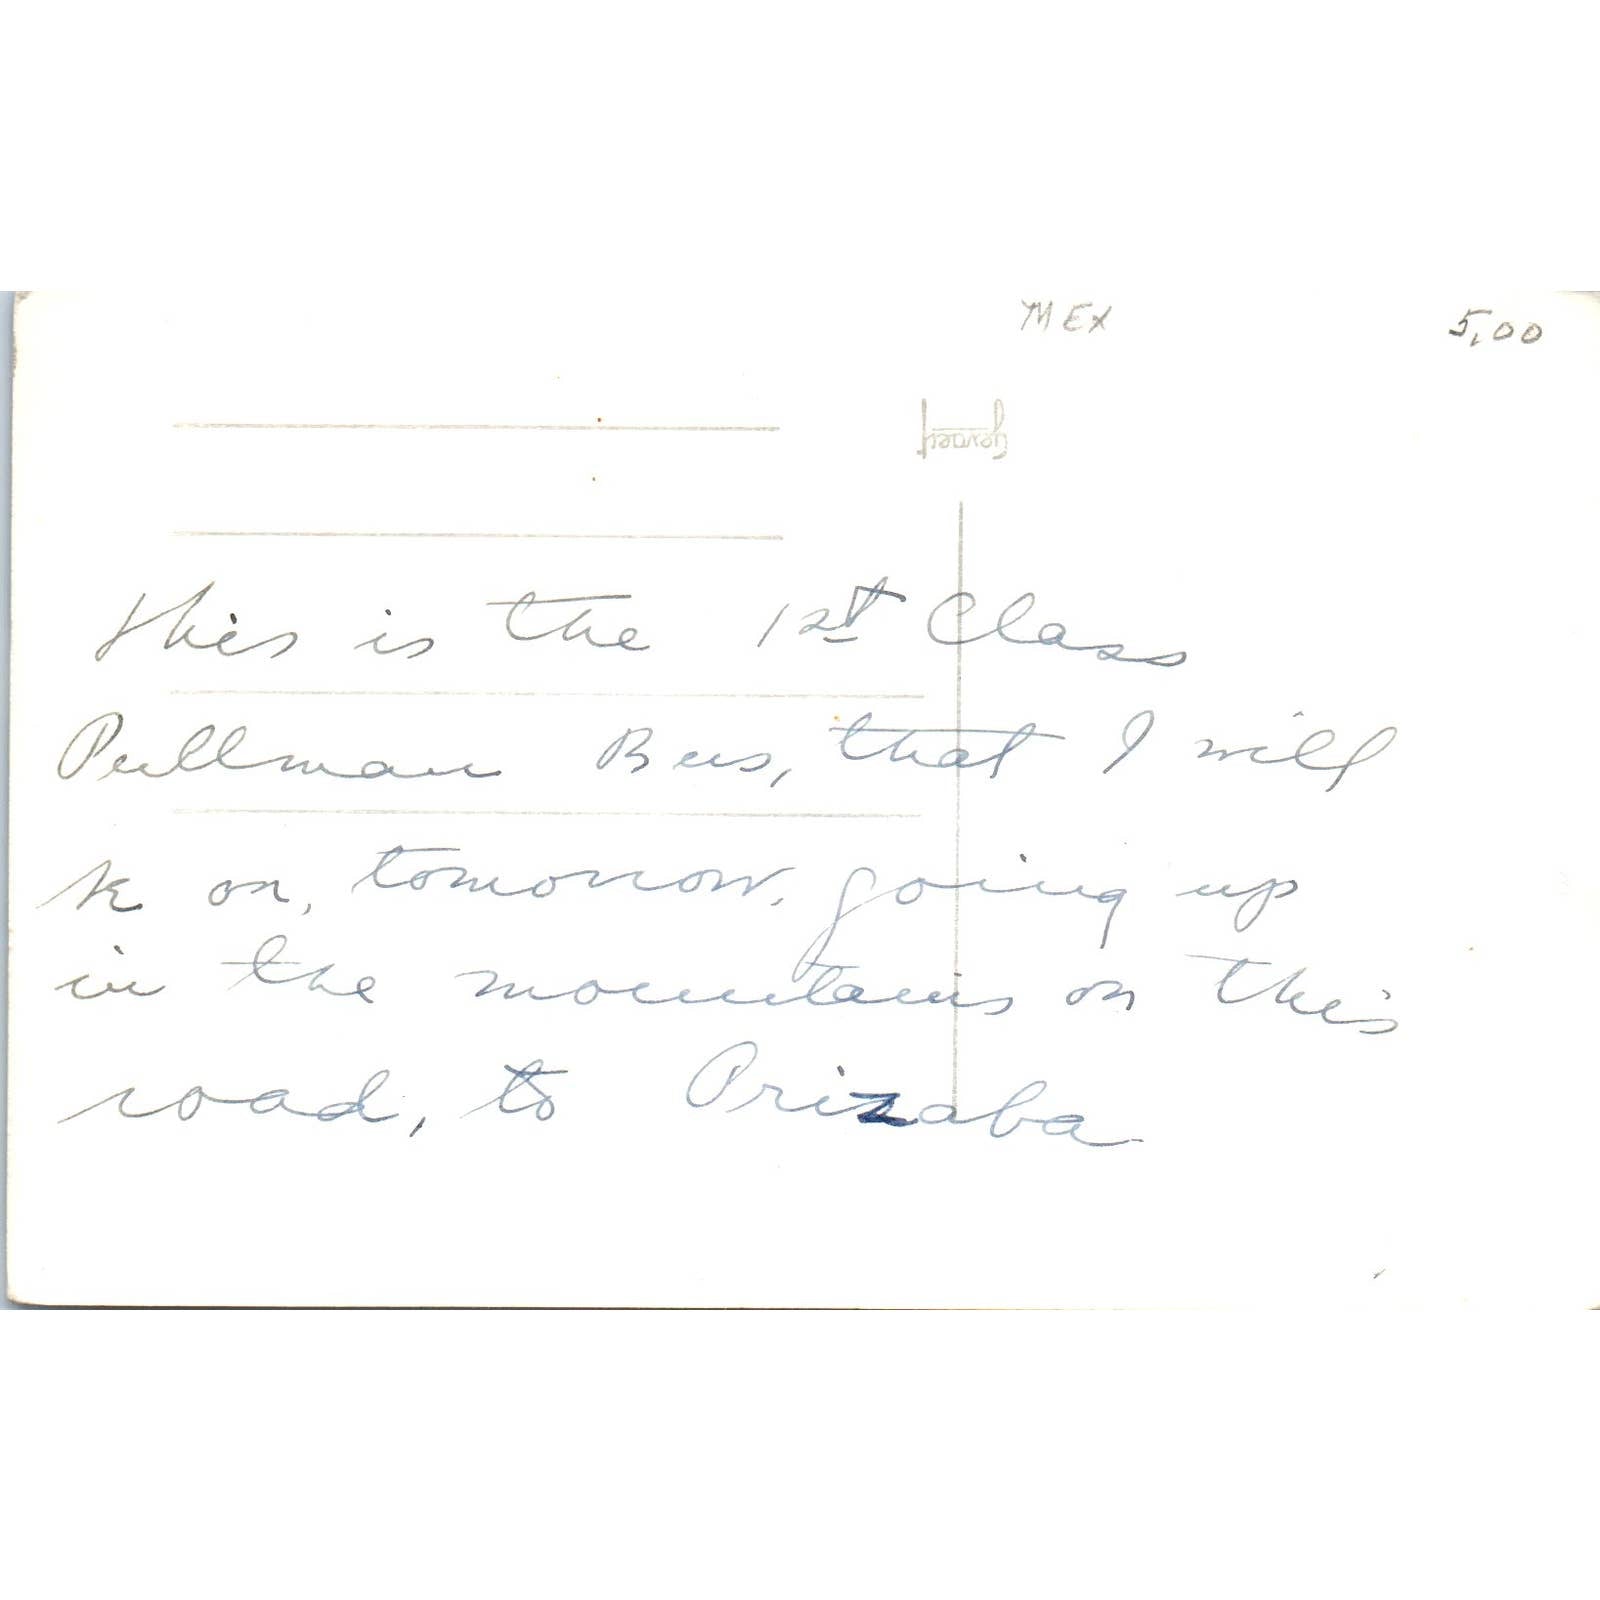 MEX 5,00
Gevaert
this is the 1st Class
Pullman Bus, that I will
be on, tomorrow, going up
in the mountains on this
road, to Orizaba